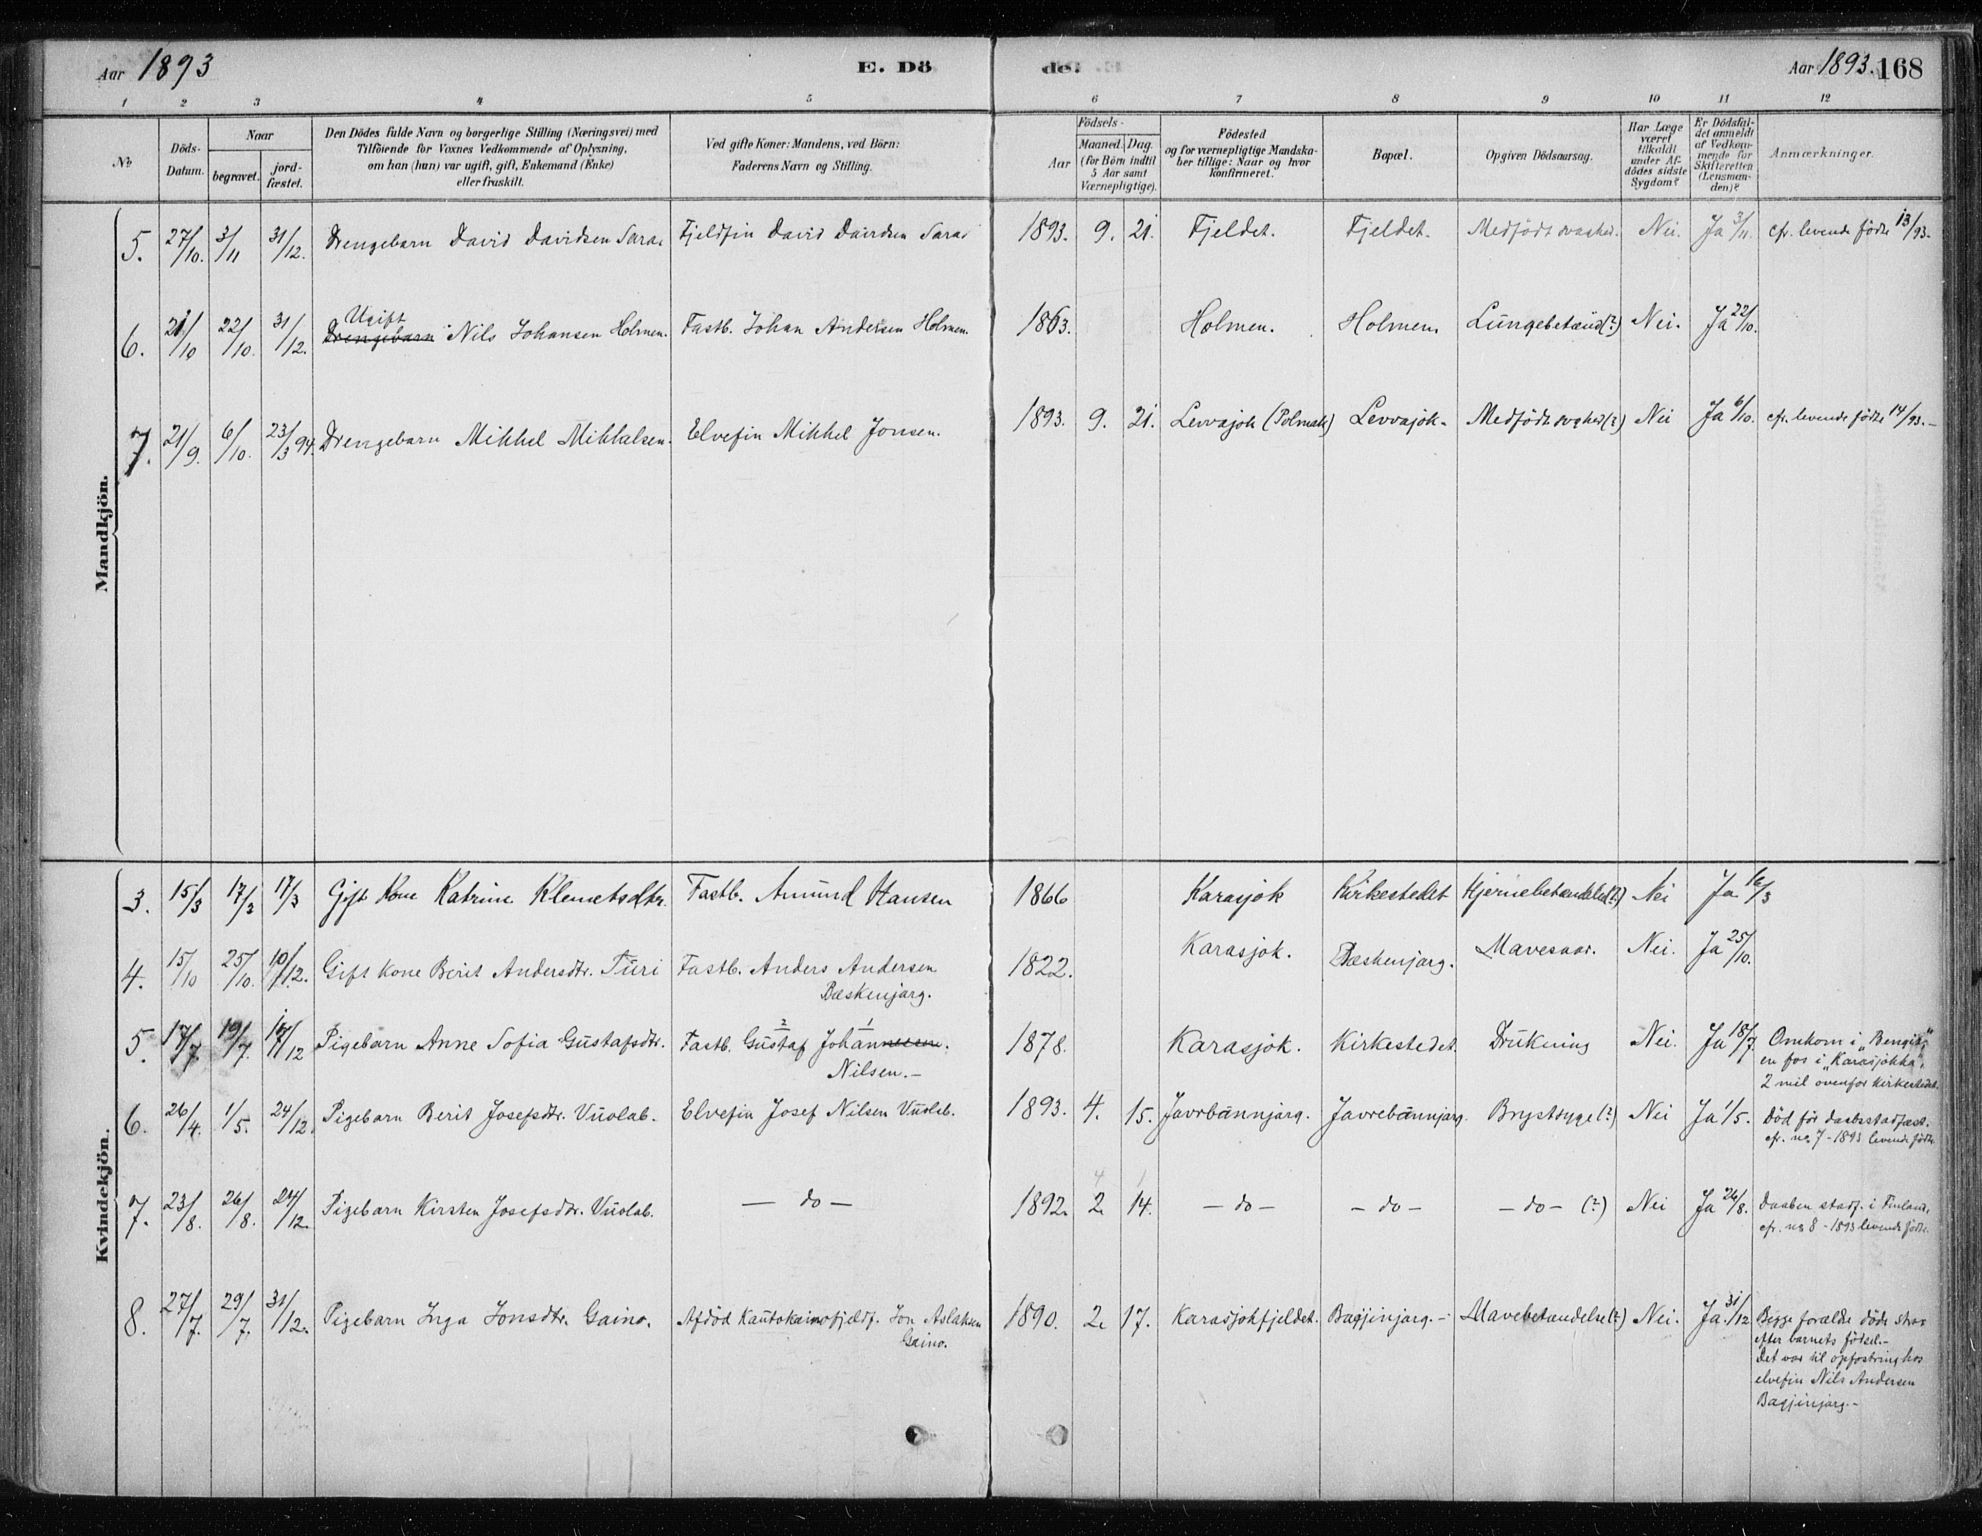 Aar 1893
E. Dö
de.
Aar 1893. 168
1 2 3 4 5 6 7 8 9 10 11 12
No
Döds-Datum.
Naar
begravet.
jord-fæstet.
Den Dödes fulde Navn og borgerlige Stilling (Næringsvei) med
Tilföiende for Voxnes Vedkommende af Oplysning,
om han (hun) var ugift, gift, Enkemand (Enke)
eller fraskilt.
Ved gifte Koner: Mandens, ved Börn:
Faderens Navn og Stilling.
Födsels-
Aar
Maaned. Dag.
(for Börn indtil
5 Aar samt
Værnepligtige).
Födested
og for værnepligtige Mandska-
ber tillige: Naar og hvor
konfirmeret.
Bopæl.
Opgiven Dödsaarsag.
Har Læge
været
tilkaldt
under Af-
dödes sidste
Sygdom?
Er Dödsfal-
det anmeldt
af Vedkom-
mende for
Skifteretten
(Lensman-
den)?
Anmærkninger.
Mandkjön.
5. 27/10. 3/11 31/12. Drengebarn David Davidsen Sara. Fjeldfin David Davidsen Sara. 1893. 9. 21. Fjeldet. Fjeldet. Medfödt svaghed. Nei. Ja 3/11. cfr. levende födte 13/93.
Ugift
6. 21/10 22/10. 31/12. Drengebarn Nils Johansen Holmen. Fastb. Johan Andersen Holmen. 1863. Holmen. Holmen. Lungebetænd(?) Nei. Ja 22/10.
7. 21/9. 6/10. 23/3 94. Drengebarn Mikkel Mikkelsen. Elvefin Mikkel Jonsen. 1893. 9. 21. Levvajok (Polmak) Levvajok. Medfödt svaghed(?) Nei Ja 6/10. cfr. levende födte 14/93.-
Kvindekjön.
3. 15/3 17/3 17/3 Gift Kone Katrine Klemetsdtr. Fastb. Amund Hansen 1866 Karasjok Kirkestedet Hjernebetændelse(?) Nei Ja 16/3
4. 15/10 25/10. 10/12. Gift Kone Berit Andersdtr. Turi Fastb. Anders Andersen 1822. Karasjok. Bæskenjarg. Mavesaar. Nei. Ja 25/10.
Bæskenjarg.
5. 17/7. 19/7. 17/12 Pigebarn Anne Sofia Gustafsdtr. Fastb. Gustaf Johannesen. 1878. Karasjok. Kirkestedet. Drukning Nei. Ja 18/7. Omkom i
2 1
Nilsen.-
en fos i „Karasjokka“,
2 mil ovenfor kirkestedet.
6. 26/4. 1/5. 24/12. Pigebarn Berit Josefsdtr. Vuolab. Elvefin Josef Nilsen Vuolab. 1893. 4. 15. Javrbánnjarg. Javrebánnjarg. Brystsyge(?) Nei Ja 1/5. Död för daabsstadfæst.
cfr. no. 7 - 1893 levende födte.
4 1
7. 23/8. 26/8. 24/12. Pigebarn Kirsten Josefsdtr. Vuolab. - do - 1892. 2. 14. - do - - do - - do - (?) Nei Ja 26/8. Daaben stadf. i Finland,
cfr. no 8 - 1893 levende födte.
8. 27/7. 29/7. 31/12. Pigebarn Inga Jonsdtr. Gaino. Afdöd Kautokeinofjeldf. Jon Aslaksen 1890. 2. 17. Karasjokfjeldet. Bagjinjarg.- Mavebetændelse(?) Nei. Ja 31/12 Begge forældre döde strax
Gaino.
efter barnets födsel.-
Det var til opfostring hos
elvefin Nils Andersen
Bagjinjarg.-